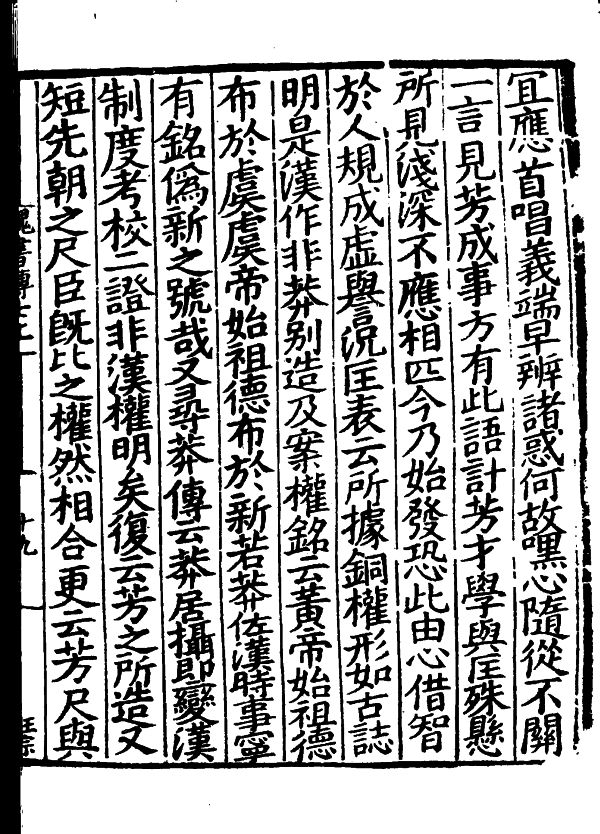 宜應首唱義端早辨諸惑何故嘿心隨從不關
一言見芳成事方有此語計芳才學與匡殊懸
所見淺深不應相匹今乃始發恐此由心借智
於人規成虛譽況匡表云所據銅權形如古誌
明是漢作非莽别造及案權銘云黃帝始祖德
布於虞虞帝始祖德布於新若莽佐漢時事寧
有銘僞新之號哉又尋莽傳云莽居攝即變漢
制度考校二證非漢權明矣復云芳之所造又
短先朝之尺臣旣比之權然相合更云芳尺與